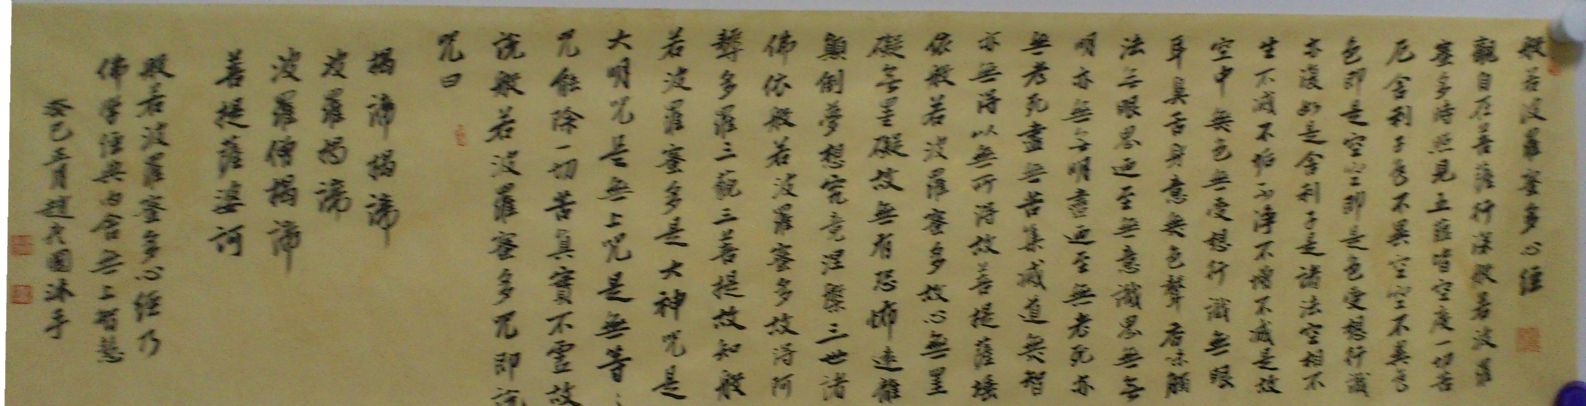 般若波羅蜜多心经
觀自在菩薩行深般若波羅
蜜多時照見五蕴皆空度一切苦
厄舍利子色不異空空不異色
色即是空空即是色受想行識
亦復如是舍利子是諸法空相不
生不滅不垢不淨不增不減是故
空中無色無受想行識無眼
耳鼻舌身意無色聲香味觸
法無眼界迺至無意識界無無
明亦無無明盡迺至無老死亦
無老死盡無苦集滅道無智
亦無得以無所得故菩提薩埵
依般若波羅蜜多故心無罣
礙無罣礙故無有恐怖遠離
顛倒夢想究竟涅槃三世諸
佛依般若波羅蜜多故得阿
耨多羅三藐三菩提故知般
若波羅蜜多是大神咒是
大明咒是無上咒是無等〻
咒能除一切苦真實不虛故
說般若波羅蜜多咒即說
咒曰
揭諦揭諦
波羅揭諦
波羅僧揭諦
菩提薩婆訶
般若波羅蜜多心经乃
佛学经典內含無上智慧
癸巳五月趙國沐手